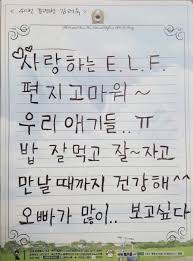 사랑하는 E.L.F.
편지고마워~
우리애기들.. ㅠ
밥 잘먹고 잘~자고
만날 때까지 건강해^^
오빠가 많이.. 보고싶다